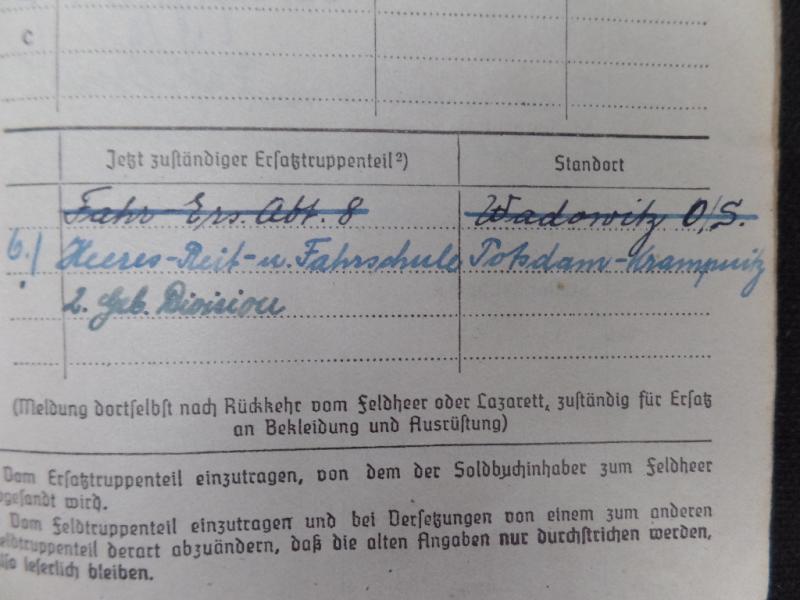 c
Jetzt zuständiger Ersatztruppenteil²) Standort
Fahr-Ers. Abt. 8 Wadowitz O/S.
6./ Heeres-Reit-u. Fahrschule Potsdam-Krampnitz
2. Geb. Division
(Meldung dortselbst nach Rückkehr vom Feldheer oder Lazarett, zuständig für Ersatz
an Bekleidung und Ausrüstung)
Vom Ersatztruppenteil einzutragen, von dem der Soldbuchinhaber zum Feldheer
gesandt wird.
Vom Feldtruppenteil einzutragen und bei Versetzungen von einem zum anderen
eldtruppenteil derart abzuändern, daß die alten Angaben nur durchstrichen werden,
also leserlich bleiben.